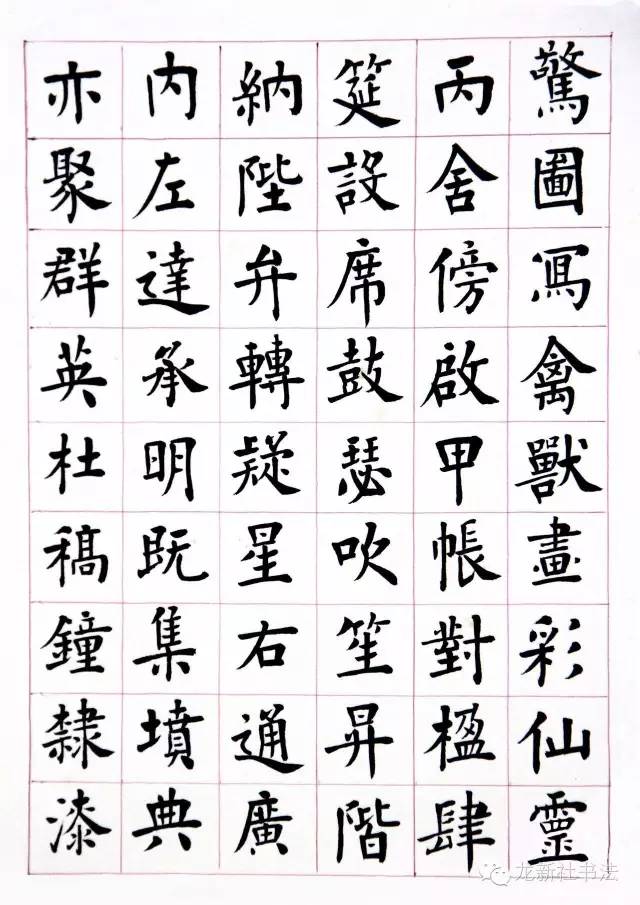 驚圖寫禽獸畫彩仙靈
丙舍傍啟甲帳對楹肆
筵設席鼓瑟吹笙昇階
納陛弁轉疑星右通廣
內左達承明既集墳典
亦聚群英杜稿鐘隸漆
龙新社书法